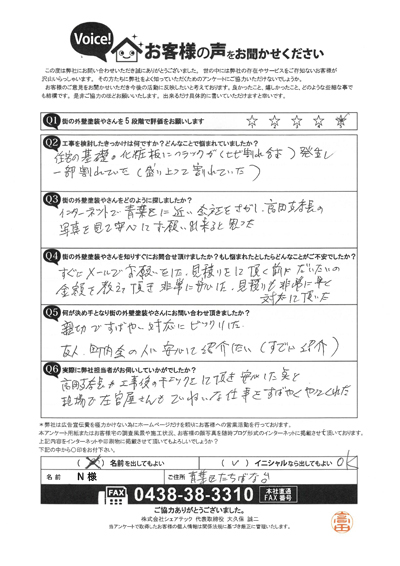 Voice!
お客様の声をお聞かせください
この度は弊社にお問い合わせいただき誠にありがとうございました。世の中には弊社の存在やサービスをご存知ないお客様が
沢山いらっしゃいます。その方たちに弊社をよく知っていただくためのアンケートにご協力いただけないでしょうか。
お客様のご意見をお聞かせいただき今後の活動に反映したいと考えております。良かったこと、嬉しかったこと、どのような些細な事で
も結構です。是非ご協力のほどお願いいたします。出来るだけ具体的に書いていただけますと幸いです。
Q1 街の外壁塗装やさんを5段階で評価をお願いします ☆ ☆ ☆ ☆ ☆
Q2 工事を検討したきっかけは何ですか?どんなことで悩まれていましたか?
住宅の基礎の化粧板にクラックが(ひび割れるよ)発生し
一部割れていた(盛り上って割れていた)
Q3 街の外壁塗装やさんをどのように探しましたか?
インターネットで青葉区に近い会社をさがし、高田支店長の
写真を見て安心してお願い出来ると思った
Q4 街の外壁塗装やさんを知りすぐにお問合せ頂けましたか?もし悩まれたとしたらどんなことがご不安でしたか?
すぐにメールでお願いをした。見積りをして頂く前にだいたいの
金額を教えて頂き非常に安心した。見積りも非常に早く
対応して頂いた
Q5 何が決め手となり街の外壁塗装やさんにお問い合わせ頂きましたか?
親切ですばやい対応にビックリした
友人、町内会の人に安心して紹介したい(すでに紹介)
Q6 実際に弊社担当者がお伺いしていかがでしたか?
高田支店長が工事後のチェックをして頂き安心した点と
現場で左官屋さんもていねいな仕事をすばやくやってくれた
*弊社は広告宣伝費を極力かけない為にホームページだけを頼りにお客様への営業活動を行っております。
*本アンケート用紙またはお客様宅の調査風景や施工状況、お客様の顔写真を随時ブログ形式のインターネットに掲載させて頂いております。
上記内容をインターネットや印刷物に掲載させて頂いてもよろしいでしょうか?
下記の中から〇印をお付下さい。
( ) 名前を出してもよい ( ✓ ) イニシャルなら出してもよい OK
名前 N 様 ご住所 青葉区たちばな台
FAX 0438-38-3310 本社直通 FAX番号
ご協力ありがとうございました。
株式会社シェアテック 代表取締役 大久保 誠二
当アンケートで取得したお客様の個人情報は関係法規に基づき厳正に管理いたします。
高田